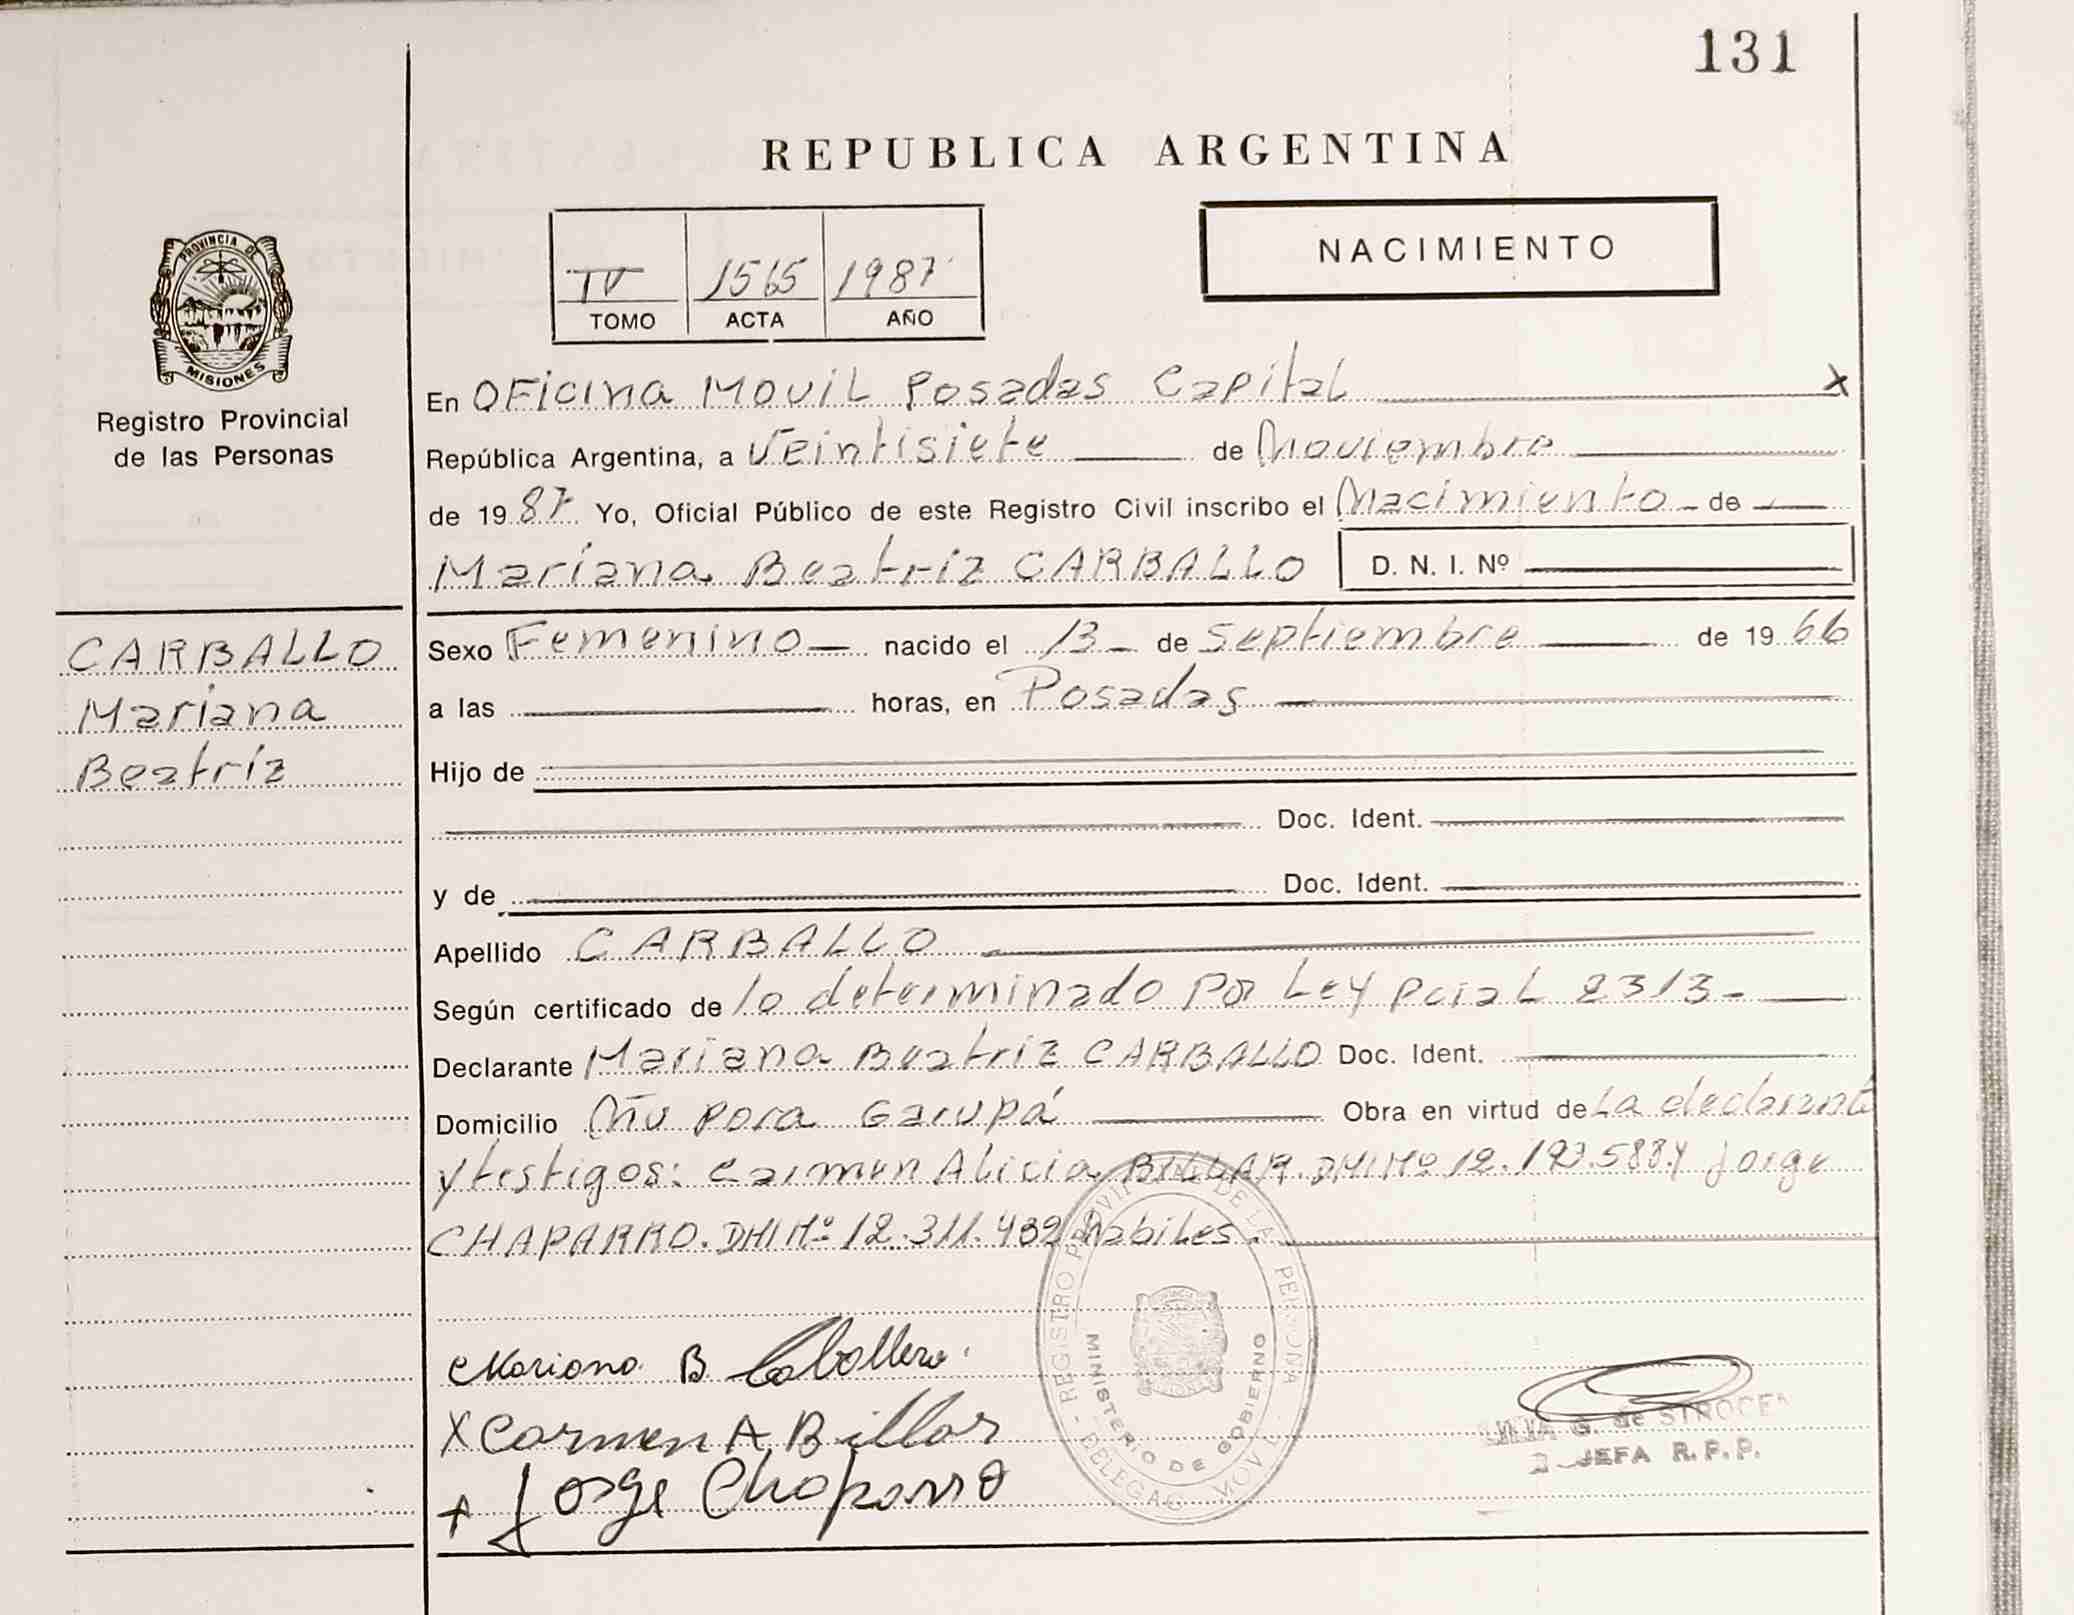 131
REPUBLICA ARGENTINA
NACIMIENTO
IV 1565 1987
TOMO ACTA AÑO
PROVINCIA DE MISIONES
Registro Provincial
de las Personas
En OFicina MOVIL Posadas Capital x
República Argentina, a Veintisiete de Noviembre
de 1987 Yo, Oficial Público de este Registro Civil inscribo el Nacimiento de
Mariana Beatriz CARBALLO D. N. I. Nº
CARBALLO
Mariana
Beatríz
Sexo Femenino nacido el 13 de Septiembre de 1966
a las horas, en Posadas
Hijo de
Doc. Ident.
y de Doc. Ident.
Apellido CARBALLO
Según certificado de lo determinado por Ley pcial 2313-
Declarante Mariana Beatriz CARBALLO Doc. Ident.
Domicilio Ñu pora Garupá Obra en virtud de La declarante
y testigos: Carmen Alicia BILLAR. DNI Nº 12.193.588 y Jorge
CHAPARRO. DNI Nº 12.311.432 habiles.
Mariana B
X Carmen A. Billar
+ Jorge Chaparro
REGISTRO PROVINCIAL DE LA PERSONA
MINISTERIO DE GOBIERNO
G. de
JEFA R.P.P.